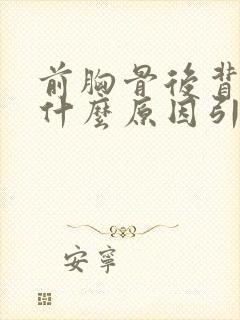 前胸骨後背
什麼原因引
安寧